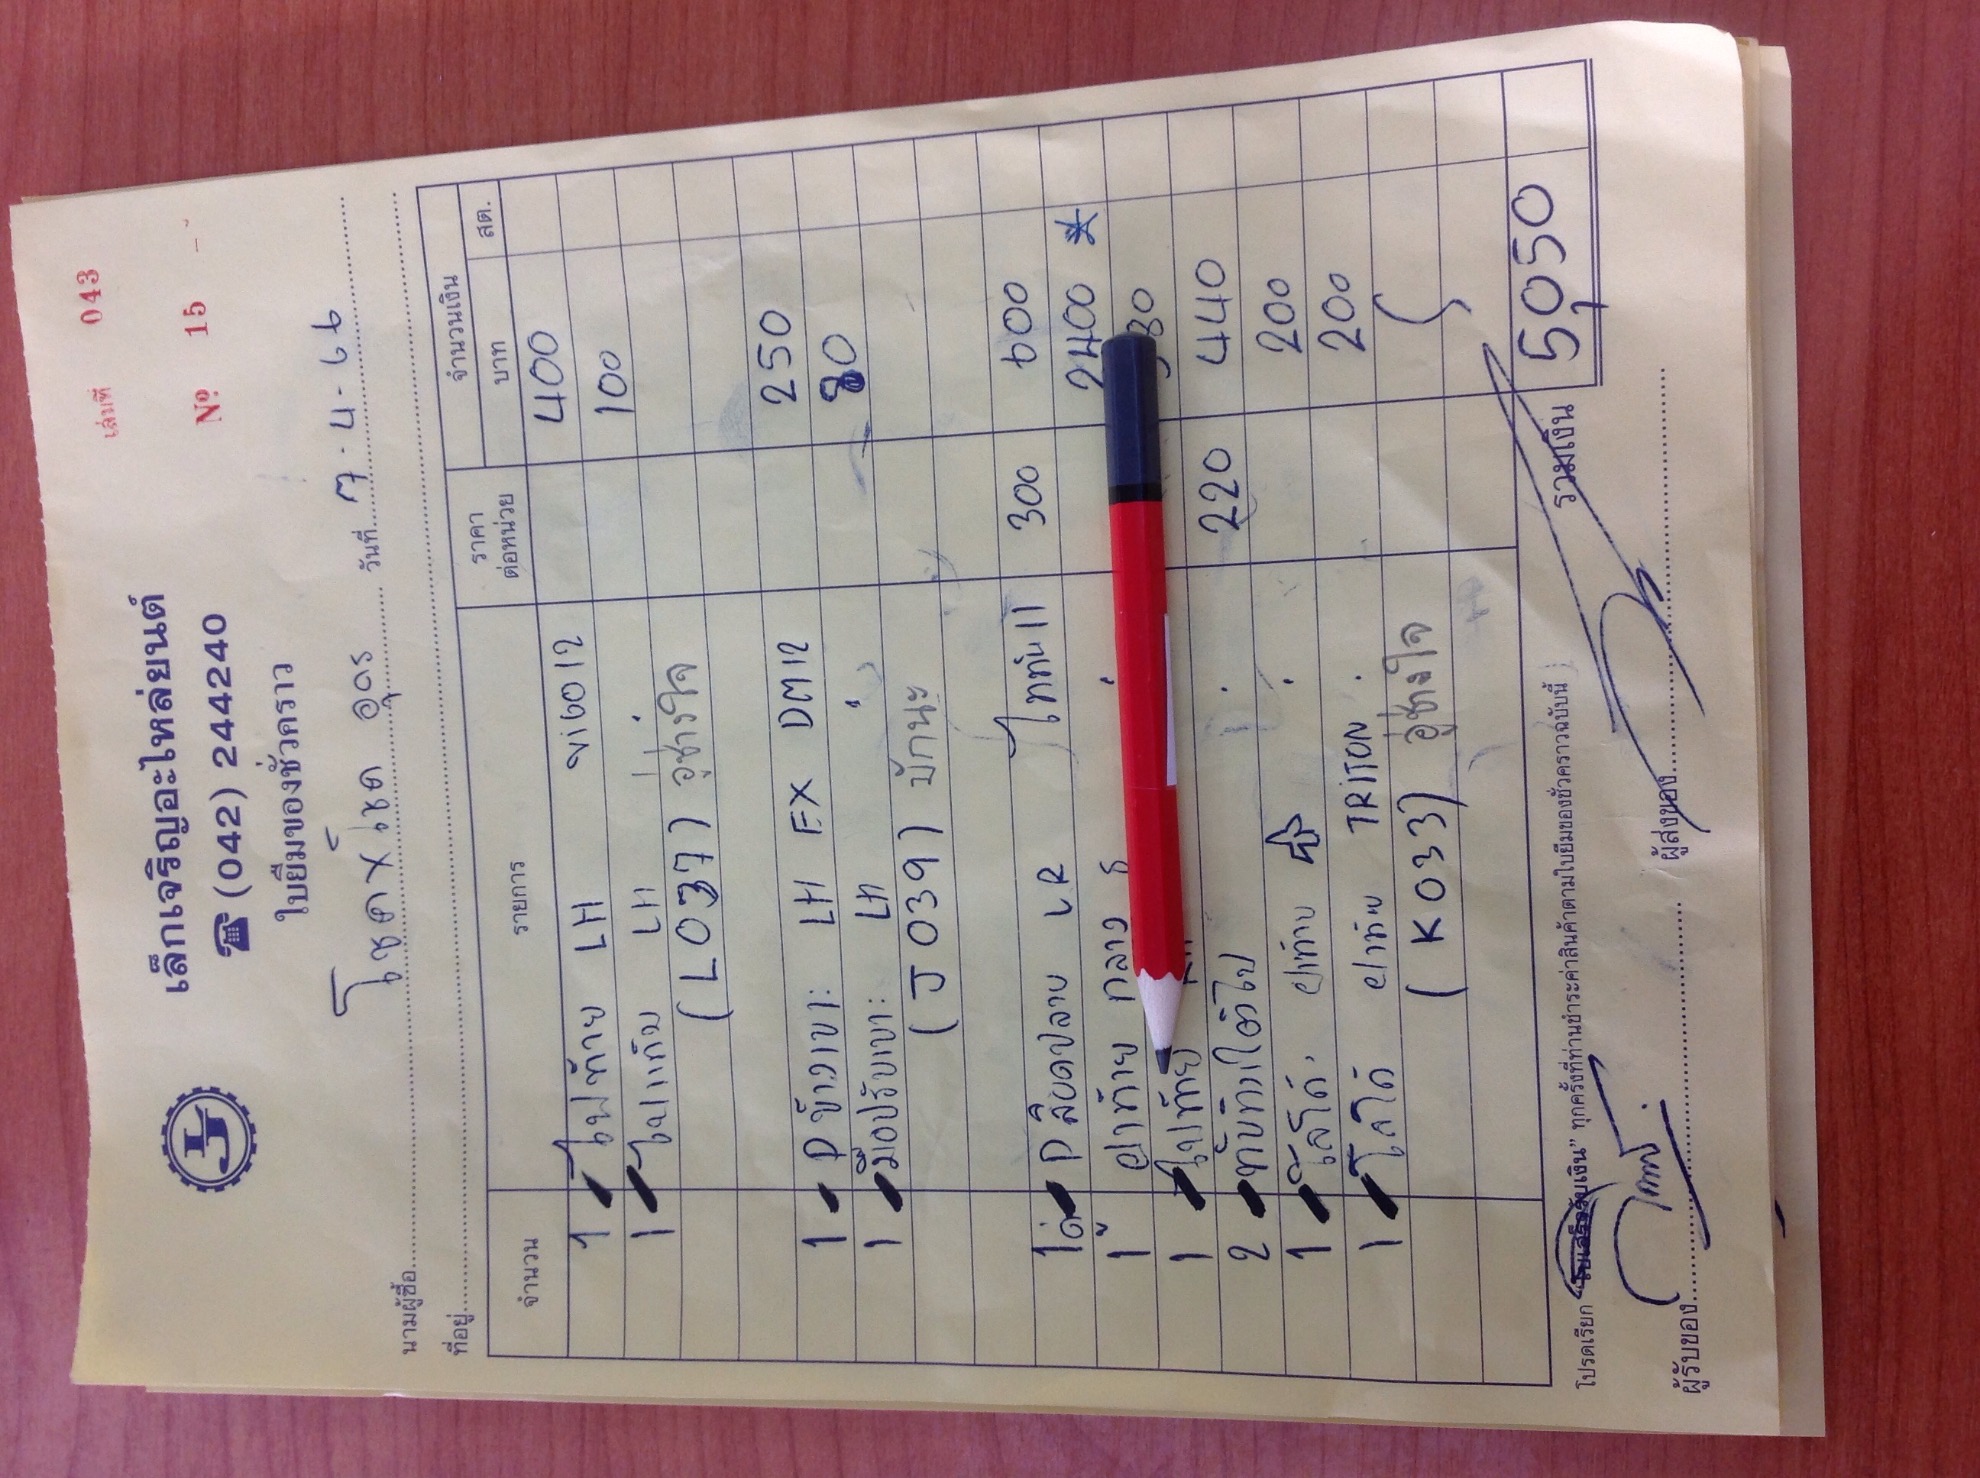 เล่มที่ 043
เล็กเจริญอะไหล่ยนต์
☎ (042) 244240
Nº 15
ใบยืมของชั่วคราว
นามผู้ซื้อ โชคชัย อุดร วันที่ 7-4-66
ที่อยู่
จำนวน รายการ ราคาต่อหน่วย จำนวนเงิน
บาท สต.
1 ไฟท้าย LH วีโก้ 12 400
1 ไฟแก้ม LH 100
(L037) อู่ช่างใจ
1 ด ข้างเบาะ LH EX DM12 250
1 มือปรับเบาะ LH 80
(J039)
1 LR ไททัน 11 300 600
1 ฝาท้าย กลาง 2400 *
1 ไฟท้าย
2 ทับทิมใต้ไฟ 220 440
1 โลโก้ ฝาท้าย 200
1 โลโก้ ฝาท้าย TRITON 200
(K033) อู่ช่างใจ
รวมเงิน 5,050
โปรดเรียก “ใบเสร็จรับเงิน” ทุกครั้งที่ท่านชำระค่าสินค้าตามใบยืมของชั่วคราวฉบับนี้
ผู้รับของ ผู้ส่งของ